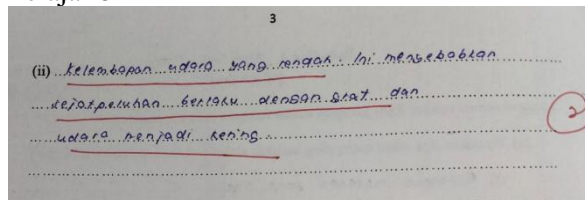 3
(ii) Kelembapan udara yang rendah. Ini menyebabkan
sejatpeluhan berlaku dengan giat dan
udara menjadi kering.
2